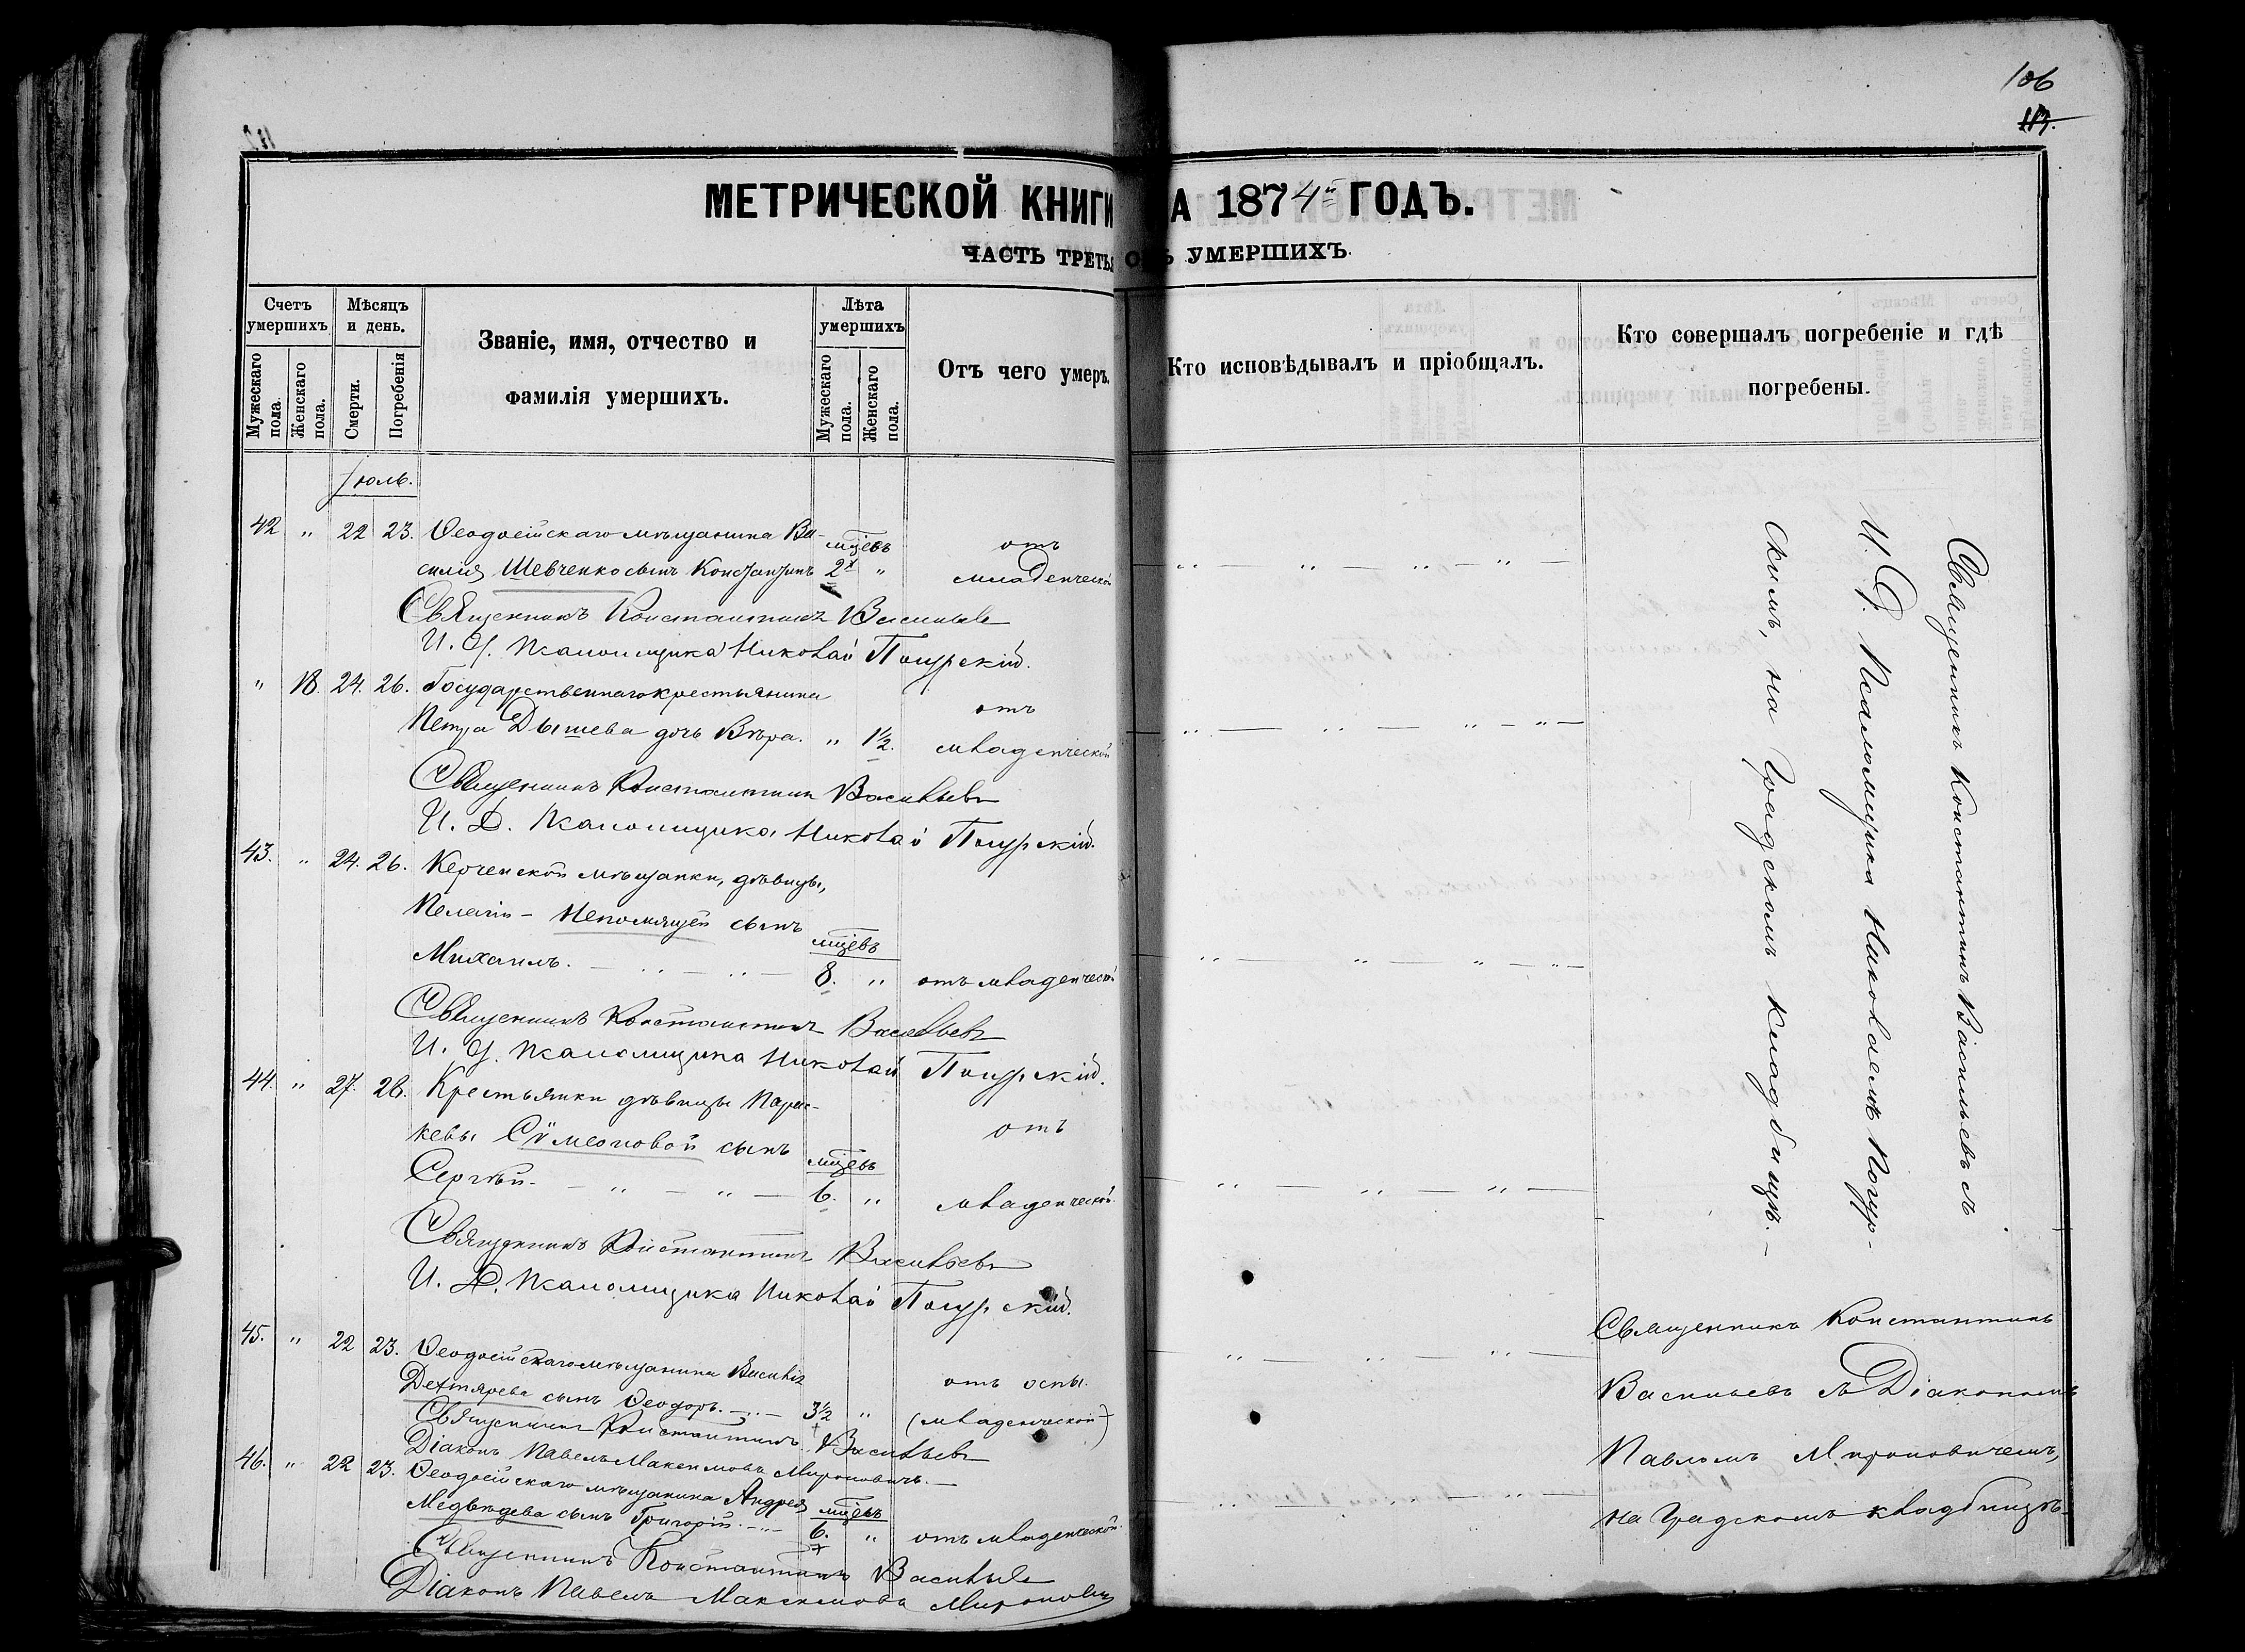 106
113.
МЕТРИЧЕСКОЙ КНИГИ
А 1874й ГОДЪ.
ЧАСТЬ ТРЕТЬЯ О
Ъ УМЕРШИХЪ.
Счетъ умершихъ.
Мужескаго пола.
Женскаго пола.
Мѣсяцъ и день.
Смерти.
Погребенія
Званіе, имя, отчество и
фамилія умершихъ.
Лѣта умершихъ
Мужескаго пола.
Женскаго пола.
Отъ чего умеръ.
Кто исповѣдывалъ и пріобщалъ.
Кто совершалъ погребеніе и гдѣ
погребены.
Іюль.
42 " 22 23. Ѳеодосійскаго мѣщанина Ва- мцевъ отъ
силія Шевченко сынъ Константинъ 2 " младенческой
Священникъ Константинъ Васильевъ
И. Д. Псаломщика Николай Погурскій.
" 18. 24. 26. Государственнаго крестьянина отъ
Петра Дышева дочь Вѣра. " 1½. младенческой
Священникъ Константинъ Васильевъ
И. Д. Псаломщика Николай Погурскій.
43. " 24. 26. Керченской мѣщанки, дѣвицы,
Пелагіи - Непомнящей сынъ мцевъ
Михаилъ. 8. " отъ младенческой
Священникъ Константинъ Васильевъ
И. Д. Псаломщика Николай Погурскій.
44. " 27. 28. Крестьянки дѣвицы Парас- отъ
кевы Сѵмеоновой сынъ мцевъ
Сергѣй. 6. " младенческой.
Священникъ Константинъ Васильевъ
И. Д. Псаломщика Николай Погурскій.
45. " 22 23. Ѳеодосійскаго мѣщанина Василія отъ оспы.
Дехтярева сынъ Ѳеодоръ. 3½ " (младенческой)
Священникъ Константинъ Васильевъ
Діаконъ Павелъ Максимовъ Мироновичъ.
46. " 22 23. Ѳеодосійскаго мѣщанина Андрея мцевъ
Медвѣдева сынъ Григорій. 6. " отъ младенческой.
Священникъ Константинъ Васильевъ
Діаконъ Павелъ Максимовъ Мироновичъ
Священникъ Константинъ Васильевъ съ
И. Д. Псаломщика Николаемъ Погур-
скимъ, на Градскомъ кладбищѣ.
Священникъ Константинъ
Васильевъ съ Діакономъ
Павломъ Мироновичемъ,
на Градскомъ кладбищѣ.